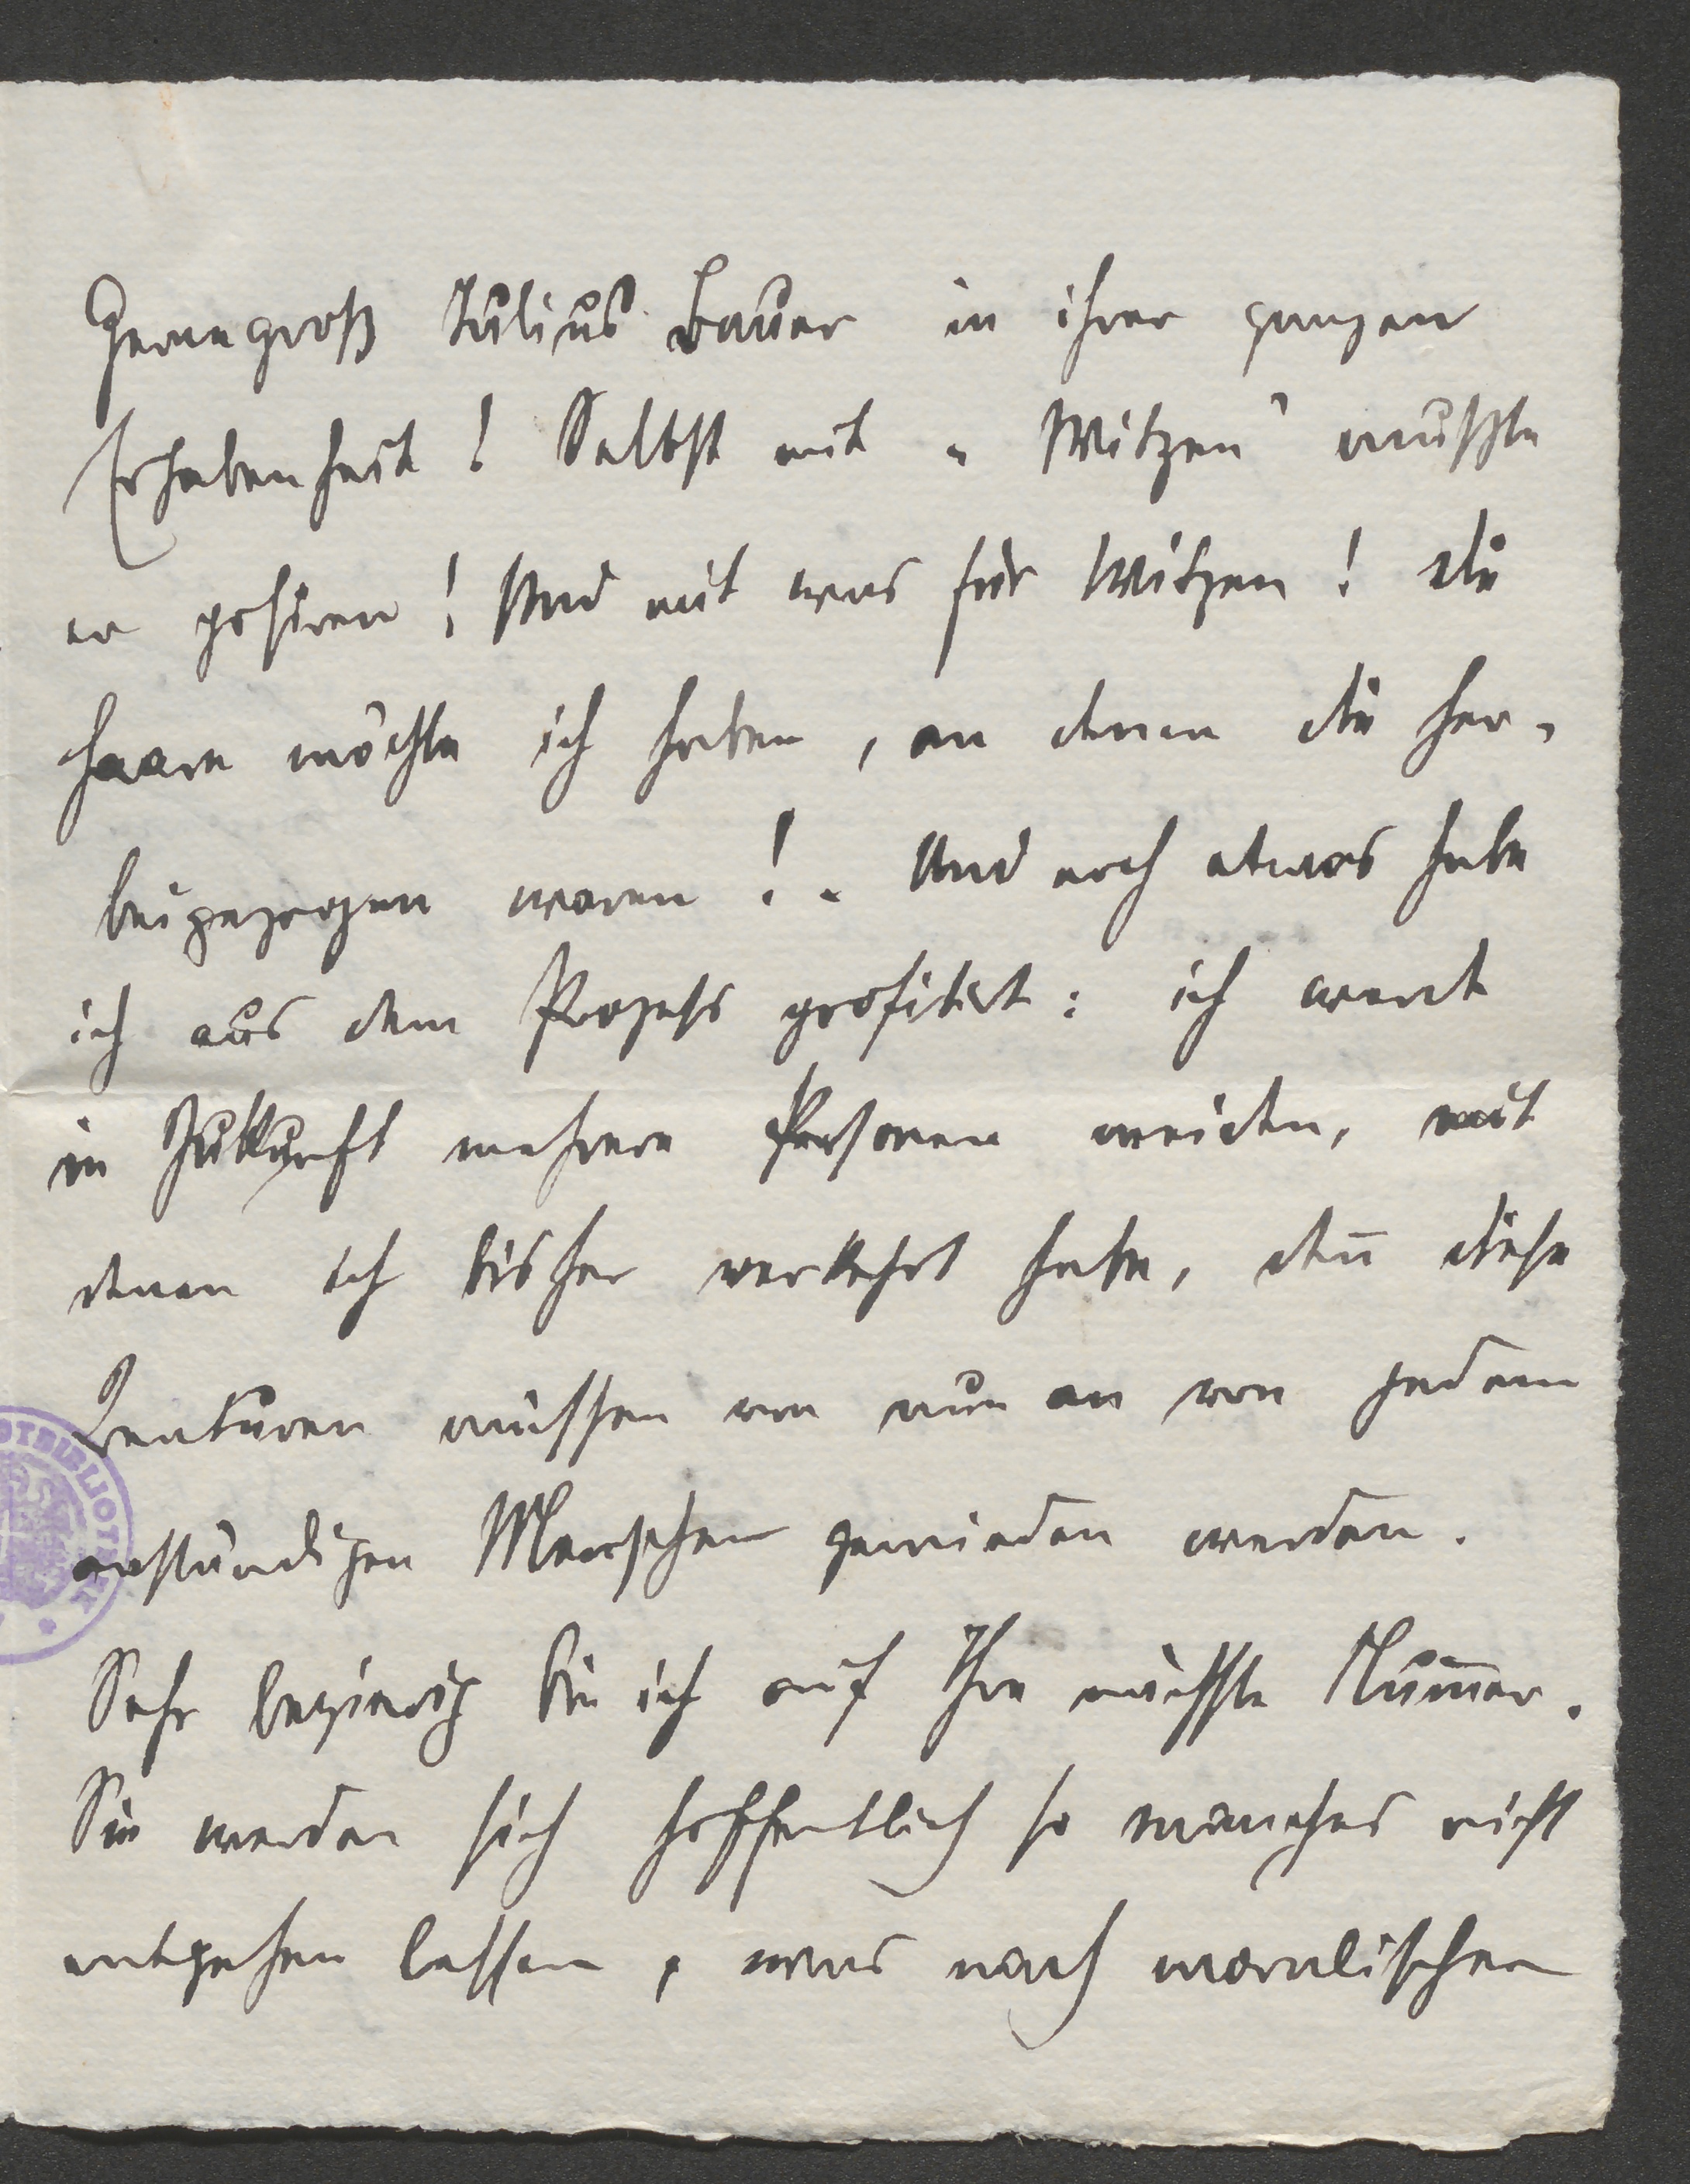 Gernegroß Julius Bauer in ihrer ganzen
Erhabenheit! Selbst mit „Witzen" mußte
er posiren! Und mit was für Witzen! Die
Haare möchte ich haben, an denen die her-
beigezogen waren! - Und noch etwas habe
ich aus dem Prozess profitirt: ich werde
in Zukunft mehrere Personen meiden, mit
denen ich bisher verkehrt habe, den̄ diese
Kreaturen müssen von nun an von jedem
anständigen Menschen gemieden werden.
Sehr begierig bin ich auf Ihre nächste Num̄er.
Sie werden sich hoffentlich so manches nicht
entgehen lassen, was nach moralischen